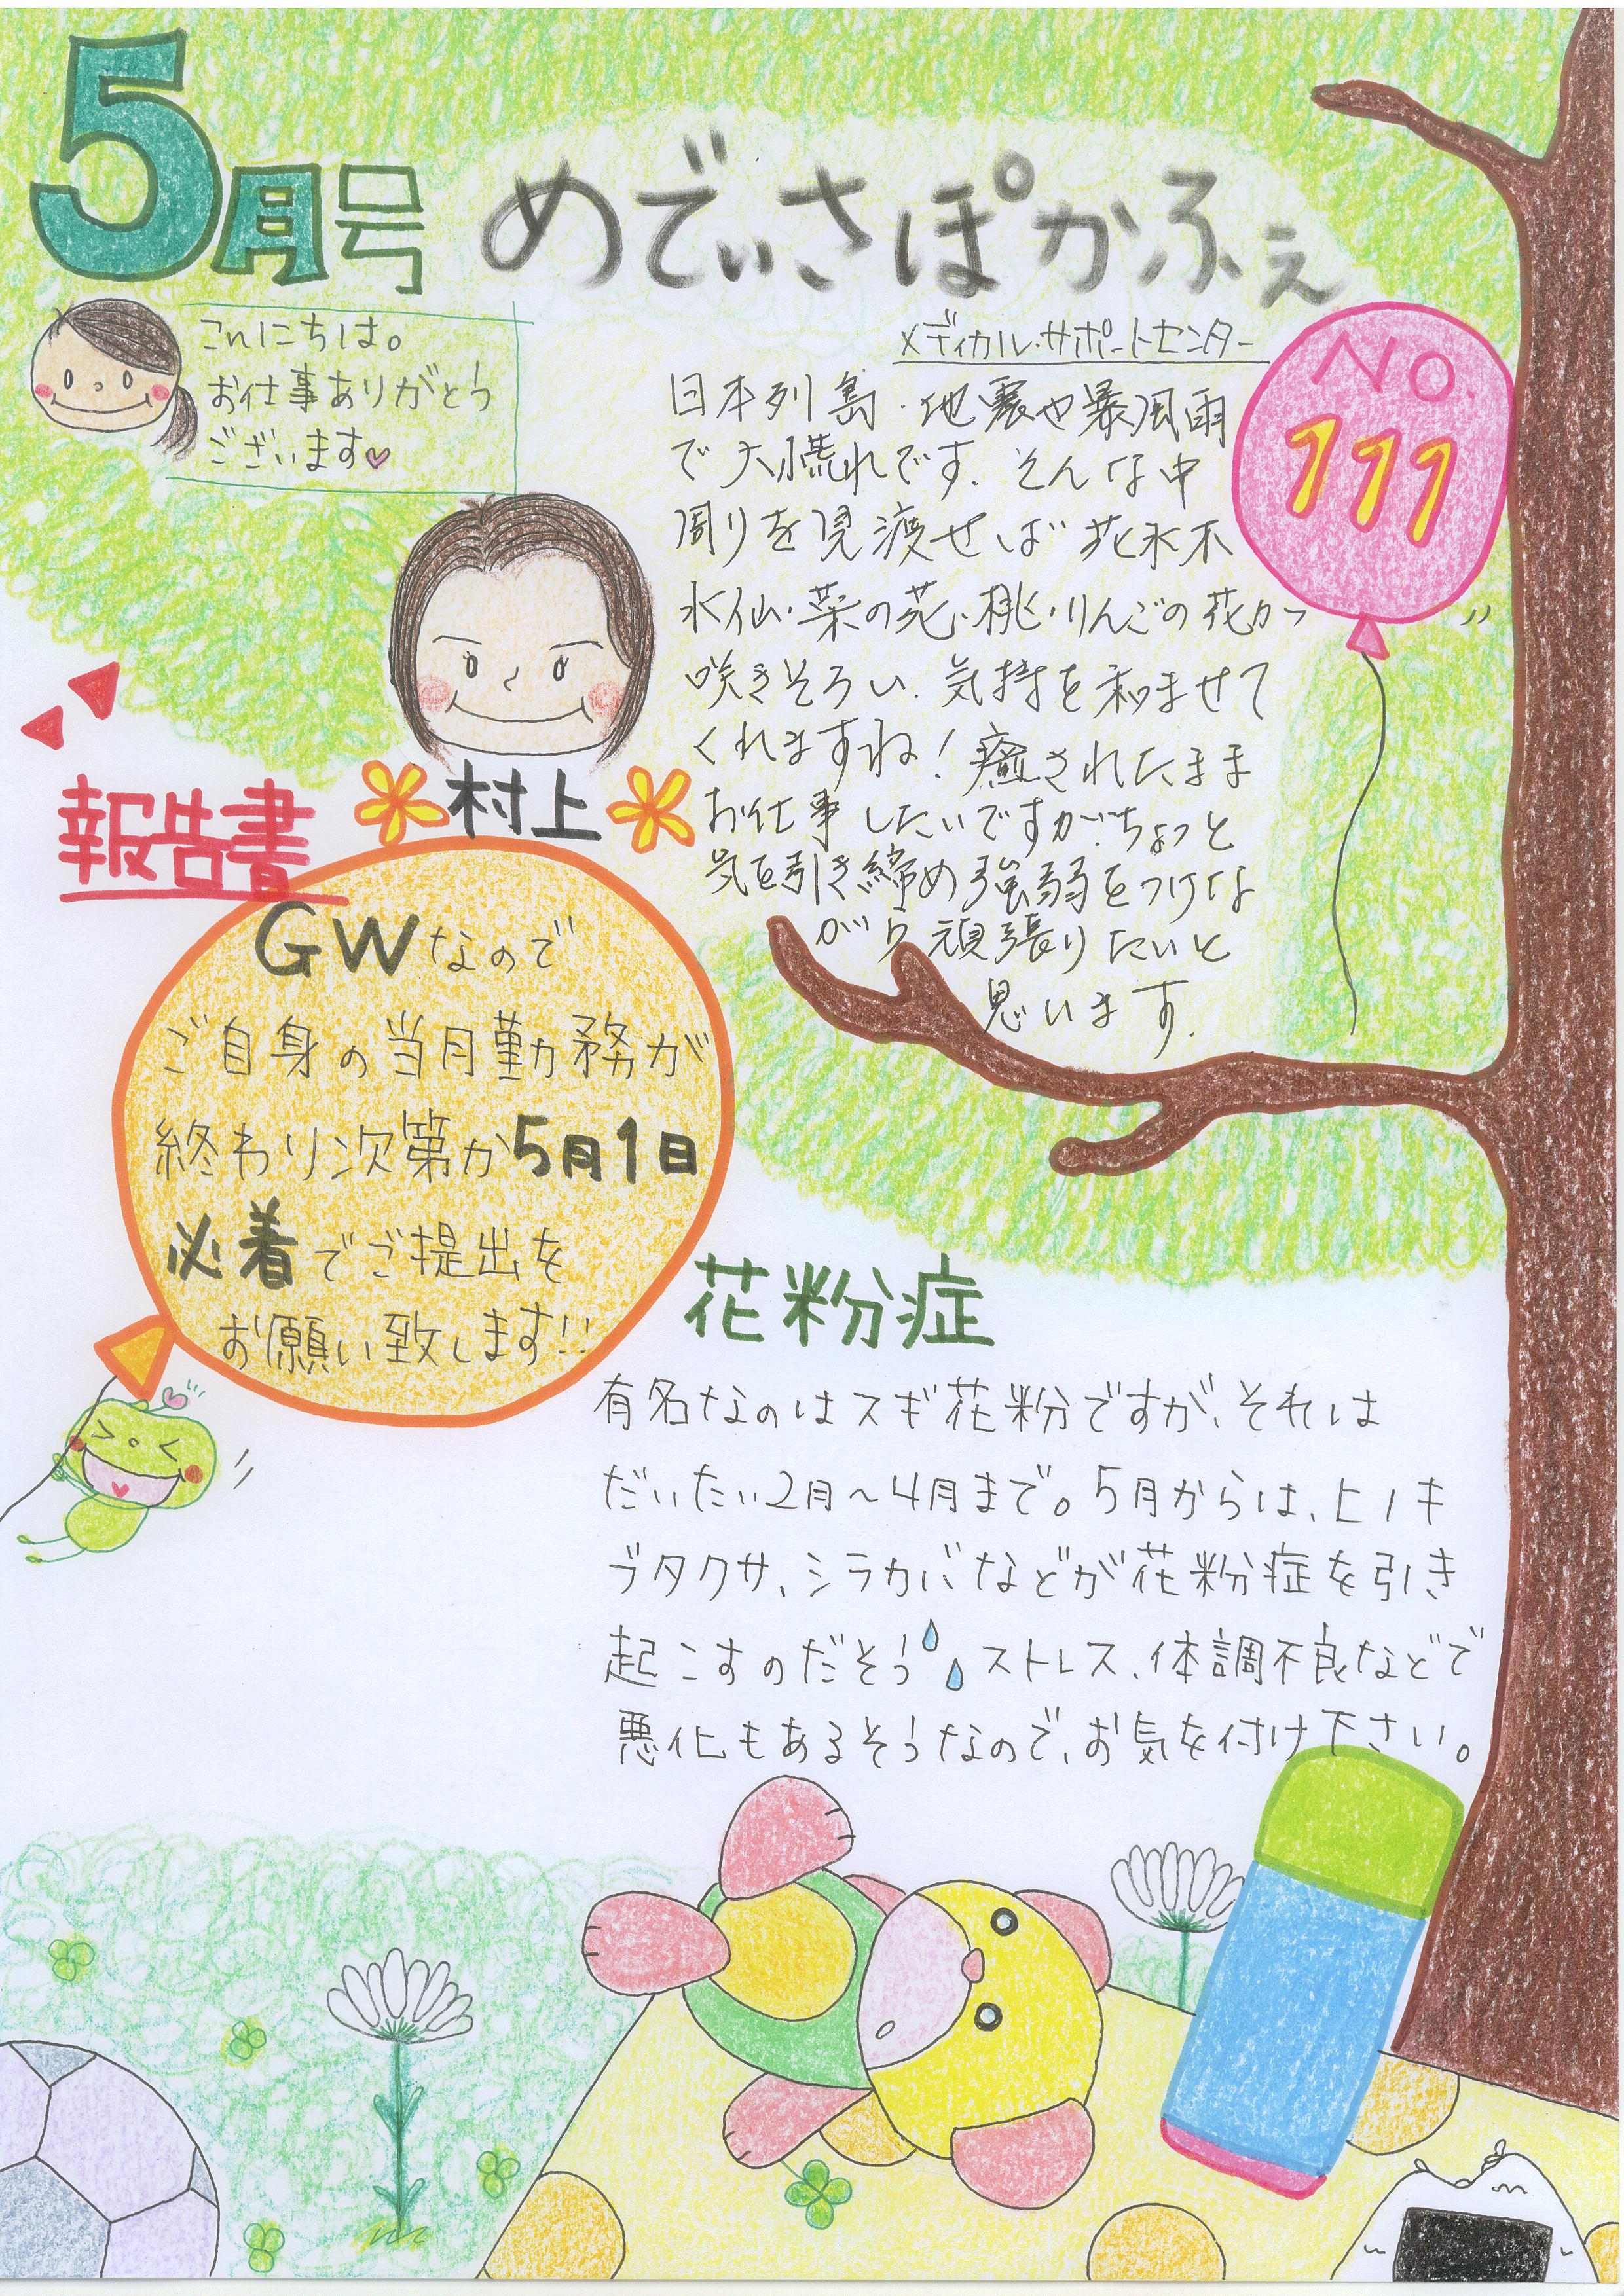 5月号
めでぃさぽかふぇ
メディカル・サポートセンター
No.
111
こんにちは。
お仕事ありがとう
ございます♡
日本列島・地震や暴風雨
で大荒れです。そんな中
周りを見渡せば花水木
水仙・菜の花・桃・りんごの花が
咲きそろい、気持を和ませて
くれますね!癒されたまま
お仕事したいですが…ちょっと
気を引き締め強弱をつけな
がら頑張りたいと
思います。
村上
報告書
GWなので
ご自身の当月勤務が
終わり次第か5月1日
必着でご提出を
お願い致します!!
花粉症
有名なのはスギ花粉ですが、それは
だいたい2月~4月まで。5月からは、ヒノキ
ブタクサ、シラカバなどが花粉症を引き
起こすのだそう ストレス、体調不良などで
悪化もあるそうなので、お気を付け下さい。